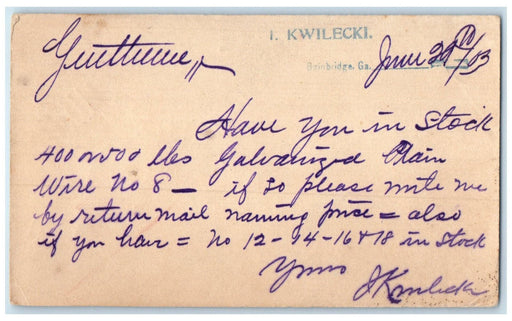 I. KWILECKI.
Bainbridge, Ga. June 29th/03
Gentlemen,
Have you in stock
400 or 500 lbs Galvanized Plain
Wire No 8 — if so please write me
by return mail naming price = also
if you have = No 12-14-16 & 18 in stock
Yours
I Kwilecki